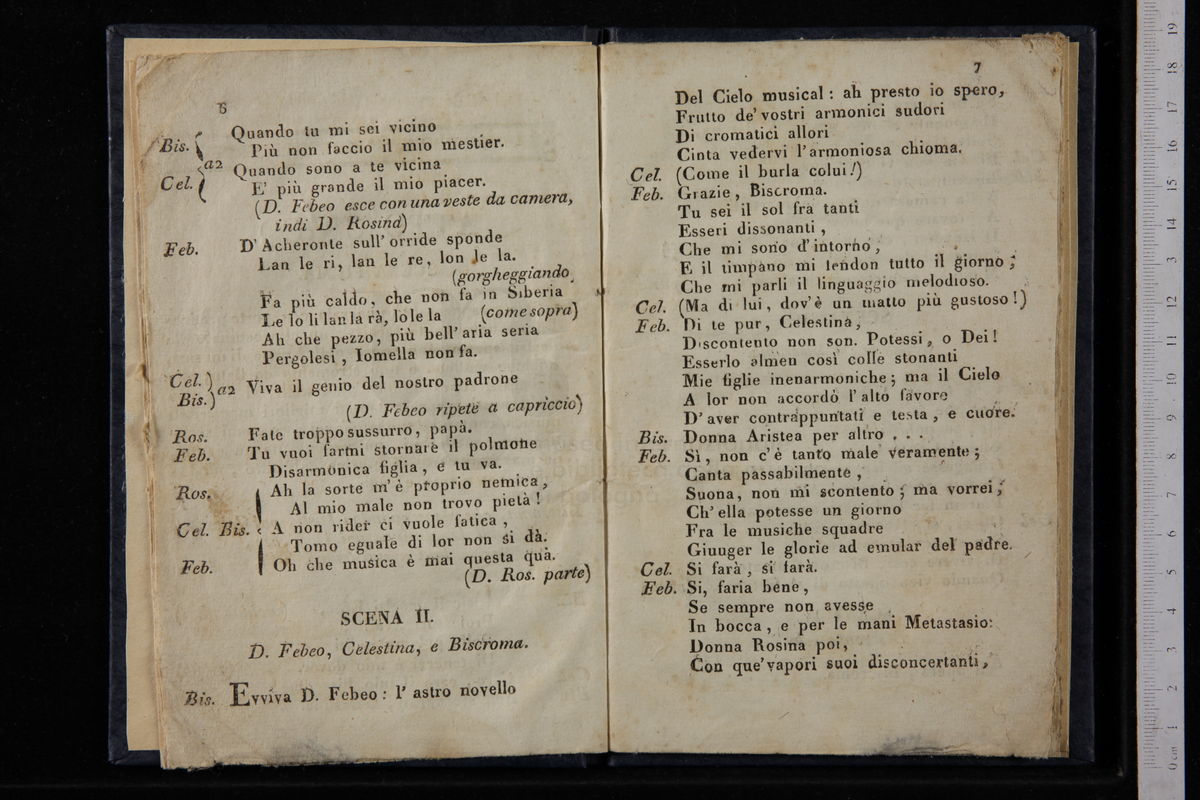 6
Bis. Quando tu mi sei vicino
Più non faccio il mio mestier.
a2
Cel. Quando sono a te vicina
E' più grande il mio piacer.
(D. Febeo esce con una veste da camera,
indi D. Rosina)
Feb. D'Acheronte sull'orride sponde
Lan le ri, lan le re, lon le la.
(gorgheggiando
Fa più caldo, che non fa in Siberia
Le lo li lan la rà, lo le la (come sopra)
Ah che pezzo, più bell'aria seria
Pergolesi, Iomella non fa.
Cel. Bis. a2 Viva il genio del nostro padrone
(D. Febeo ripete a capriccio)
Ros. Fate troppo sussurro, papà.
Feb. Tu vuoi farmi stornare il polmone
Disarmonica figlia, e tu va.
Ros. Ah la sorte m'è proprio nemica,
Al mio male non trovo pietà!
Cel. Bis. A non rider ci vuole fatica,
Tomo eguale di lor non si dà.
Feb. Oh che musica è mai questa quà.
(D. Ros. parte)
SCENA II.
D. Febeo, Celestina, e Biscroma.
Bis. Evviva D. Febeo: l'astro novello
7
Del Cielo musical: ah presto io spero,
Frutto de'vostri armonici sudori
Di cromatici allori
Cinta vedervi l'armoniosa chioma.
Cel. (Come il burla colui!)
Feb. Grazie, Biscroma.
Tu sei il sol fra tanti
Esseri dissonanti,
Che mi sono d'intorno,
E il timpano mi tendon tutto il giorno;
Che mi parli il linguaggio melodioso.
Cel. (Ma di lui, dov'è un matto più gustoso!)
Feb. Di te pur, Celestina,
Discontento non son. Potessi, o Dei!
Esserlo almen così colle stonanti
Mie figlie inenarmoniche; ma il Cielo
A lor non accordò l'alto favore
D'aver contrappuntati e testa, e cuore.
Bis. Donna Aristea per altro . . .
Feb. Sì, non c'è tanto male veramente;
Canta passabilmente,
Suona, non mi scontento; ma vorrei,
Ch'ella potesse un giorno
Fra le musiche squadre
Giuuger le glorie ad emular del padre.
Cel. Si farà, si farà.
Feb. Si, faria bene,
Se sempre non avesse
In bocca, e per le mani Metastasio:
Donna Rosina poi,
Con que'vapori suoi disconcertanti,
0 cm 1 2 3 4 5 6 7 8 9 10 11 12 13 14 15 16 17 18 19